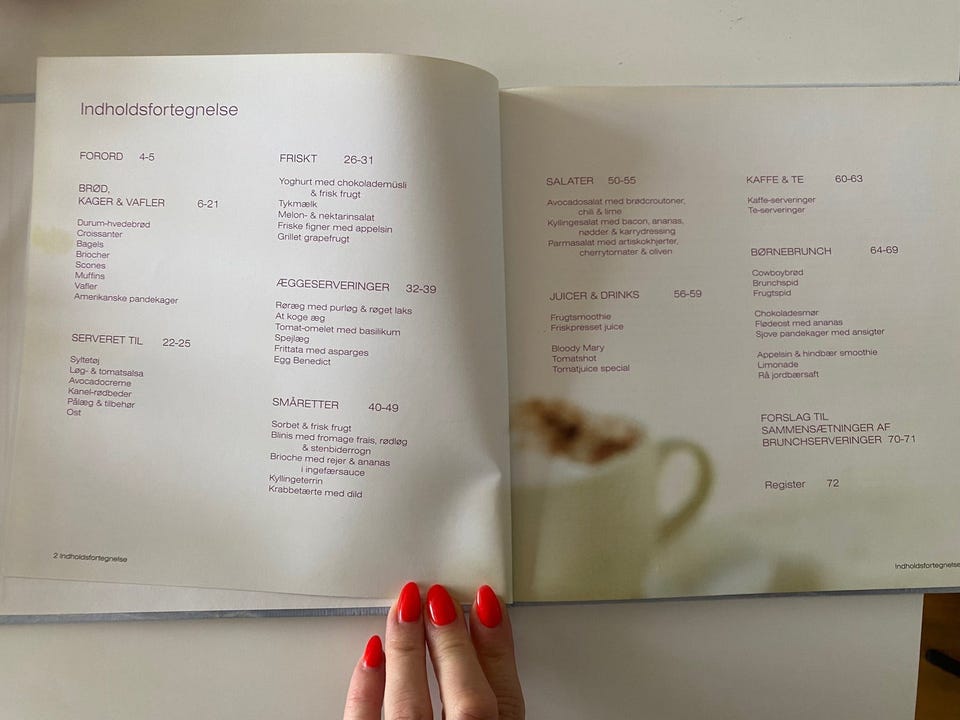 Indholdsfortegnelse
FORORD 4-5
BRØD,
KAGER & VAFLER 6-21
Durum-hvedebrød
Croissanter
Bagels
Briocher
Scones
Muffins
Vafler
Amerikanske pandekager
SERVERET TIL 22-25
Syltetøj
Løg- & tomatsalsa
Avocadocreme
Kanel-rødbeder
Pålæg & tilbehør
Ost
2 Indholdsfortegnelse
FRISKT 26-31
Yoghurt med chokolademüsli
& frisk frugt
Tykmælk
Melon- & nektarinsalat
Friske figner med appelsin
Grillet grapefrugt
ÆGGESERVERINGER 32-39
Røræg med purløg & røget laks
At koge æg
Tomat-omelet med basilikum
Spejlæg
Frittata med asparges
Egg Benedict
SMÅRETTER 40-49
Sorbet & frisk frugt
Blinis med fromage frais, rødløg
& stenbiderrogn
Brioche med rejer & ananas
i ingefærsauce
Kyllingeterrin
Krabbetærte med dild
SALATER 50-55
Avocadosalat med brødcroutoner,
chili & lime
Kyllingesalat med bacon, ananas,
nødder & karrydressing
Parmasalat med artiskokhjerter,
cherrytomater & oliven
JUICER & DRINKS 56-59
Frugtsmoothie
Friskpresset juice
Bloody Mary
Tomatshot
Tomatjuice special
KAFFE & TE 60-63
Kaffe-serveringer
Te-serveringer
BØRNEBRUNCH 64-69
Cowboybrød
Brunchspid
Frugtspid
Chokoladesmør
Flødeost med ananas
Sjove pandekager med ansigter
Appelsin & hindbær smoothie
Limonade
Rå jordbærsaft
FORSLAG TIL
SAMMENSÆTNINGER AF
BRUNCHSERVERINGER 70-71
Register 72
Indholdsfortegnelse